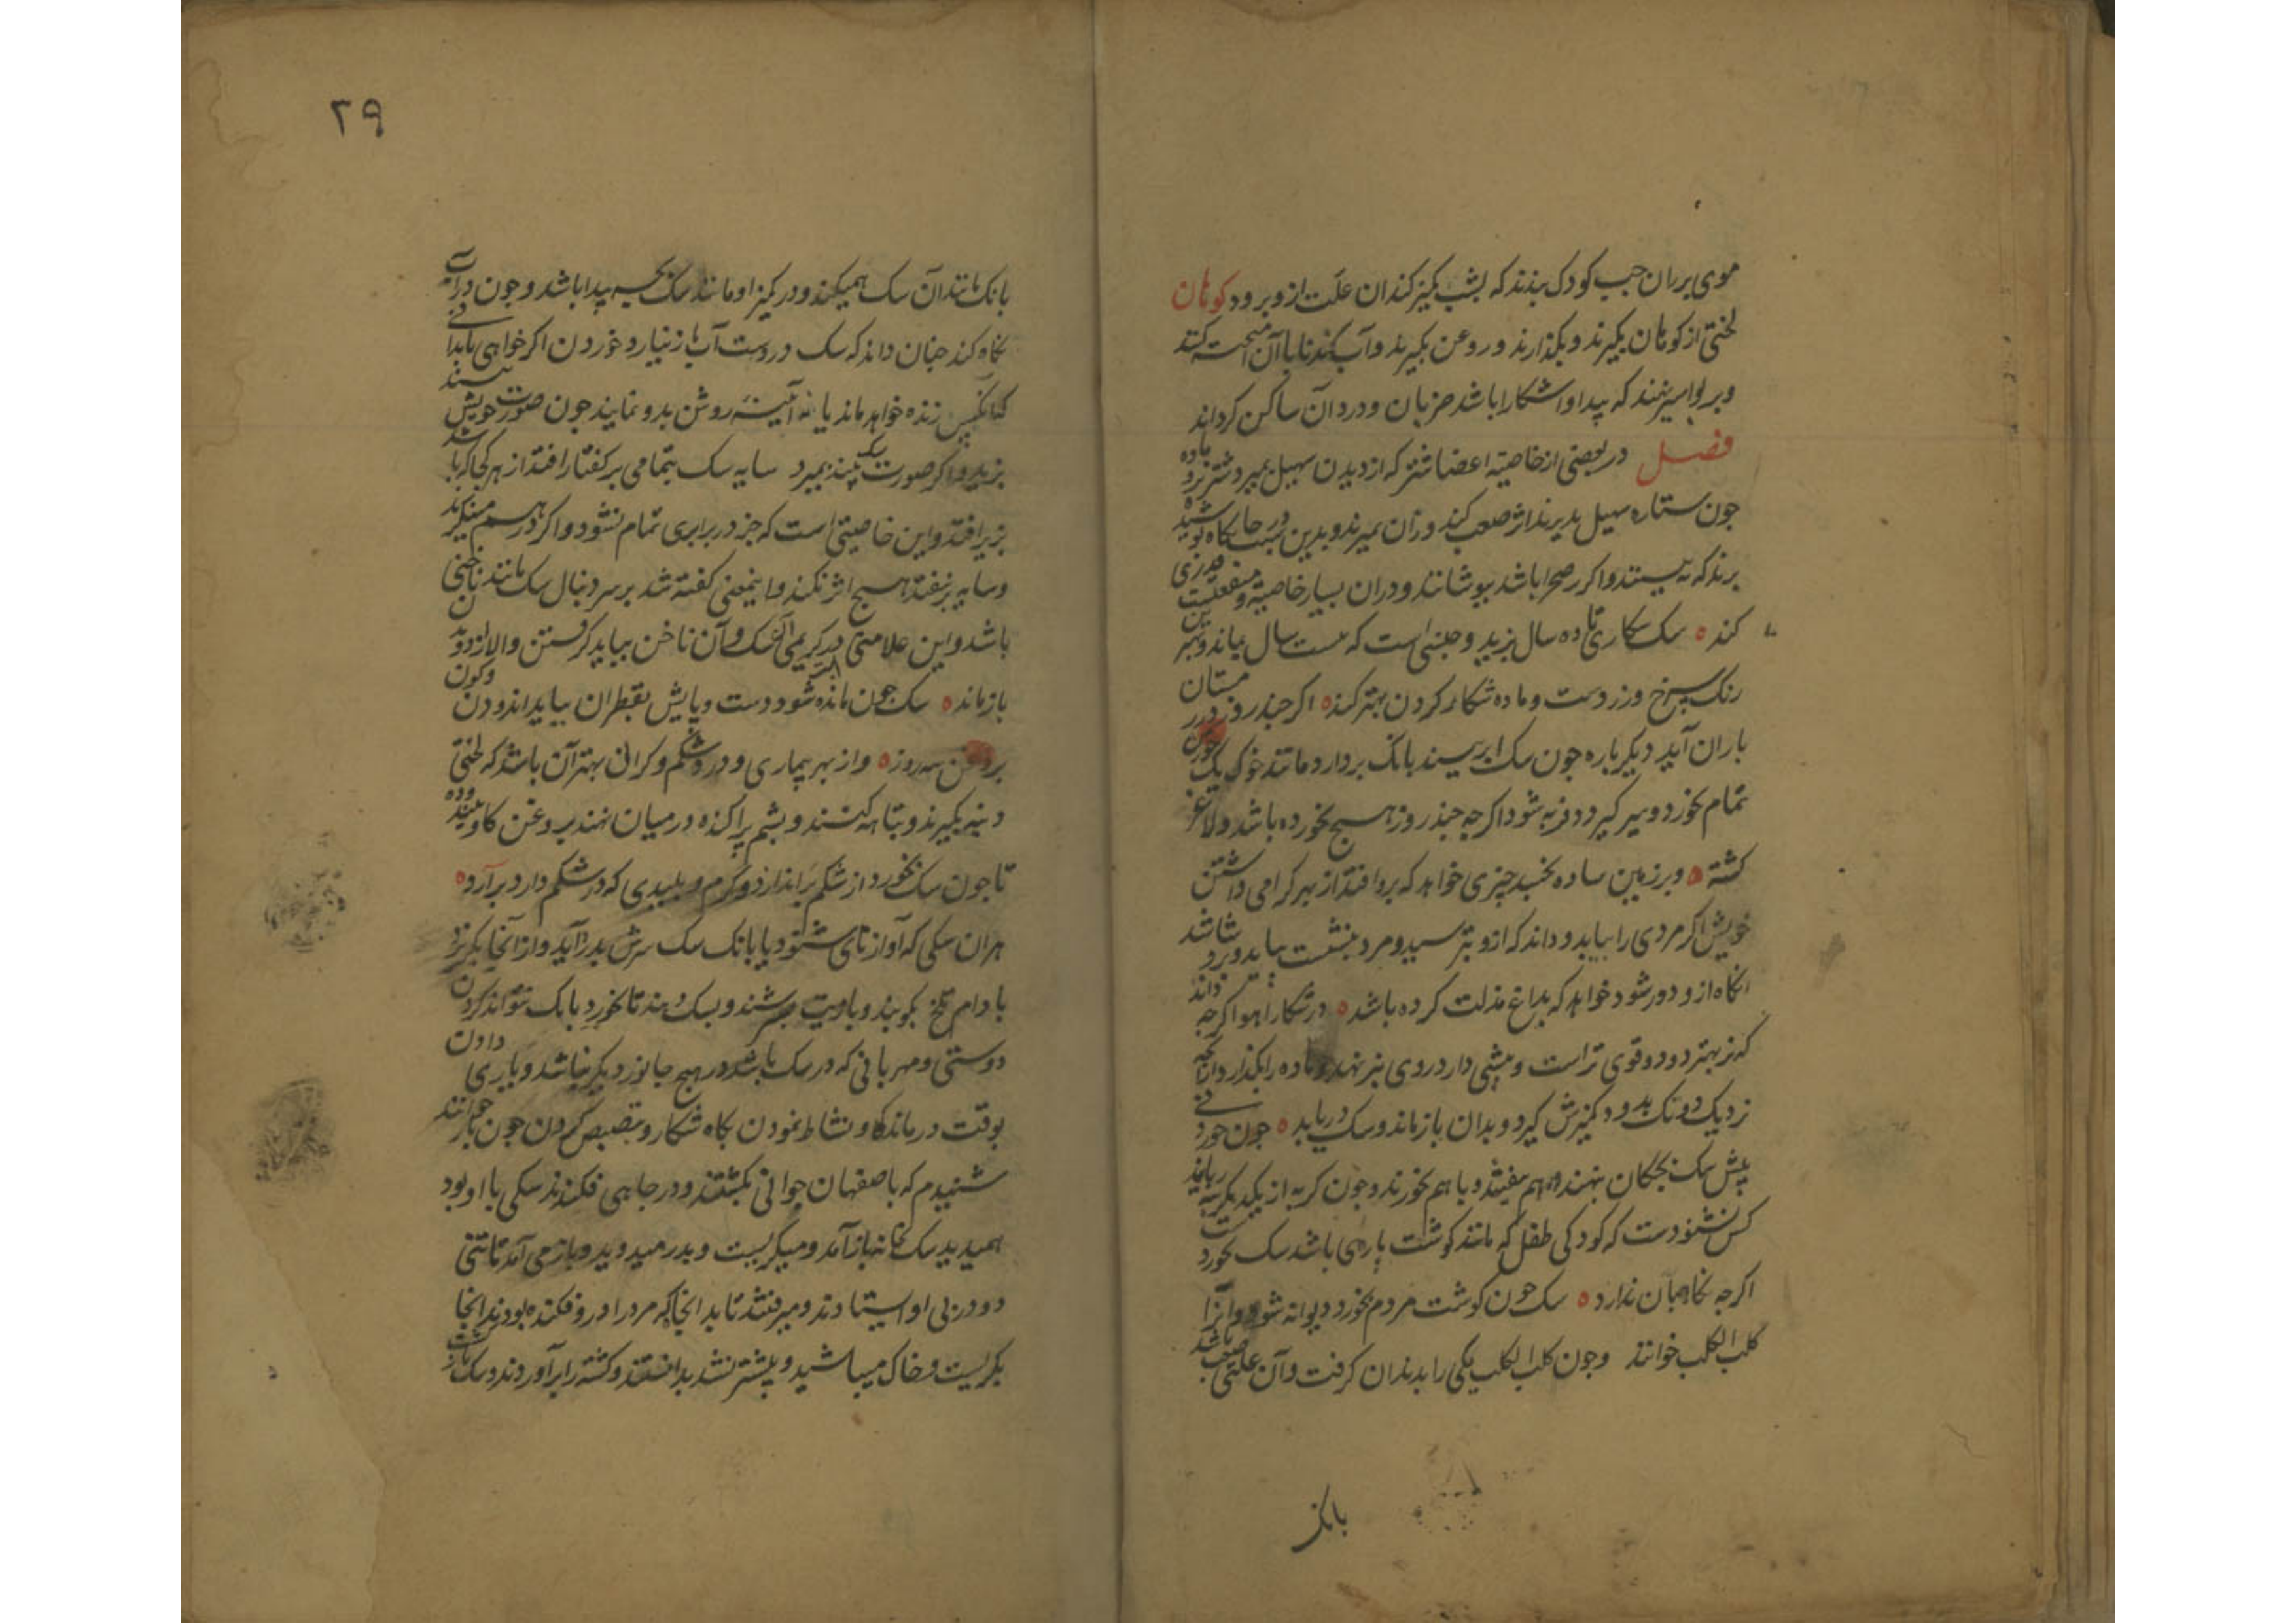 موی بر ران چپ کودک بندند که بشب کمیز کند ان علت ازو برود کوهان
لختی از کوهان بکیرند و بکدازند و روغن بکیرند و آب کندنا با آن امیخته کنند
و بر بواسیر نهند که پیدا و اشکارا باشد ضربان و درد آن ساکن کرداند
فصل در بعضی از خاصیة اعضا شتر که از دیدن سهیل بمیرد شتر نر و ماده
چون ستاره سهیل بدیدند اثر صعب کند و زان بمیرند و بدین سبب در جایکاه پوشیده
برند که نه بیستند و اکر صحرا باشد بپوشانند و در ان بسیار خاصیة و منفعتیست
کند ه سک شکاری تا ده سال بزید و جنسی است که بیست سال بماند و بهترین
رنک سرخ و زردست و ماده شکار کردن بهتر کند ه اکر چند روز در زمستان
باران آید دیکر باره چون سک ابر بیند بانک بردارد مانند خوک یک خورش
تمام بخورد و سیر کیرد و فربه شود اکرچه چند روز هیچ نخورده باشد و لاغر
کشته ه و بر زمین ساده نخسبد چیزی خواهد که برو افتد از بهر کرامی داشتن
خویش اکر مردی را بیابد و داند که ازو بترسید و مرد بنشست بیاید و برو شاشد
انکاه ازو دور شود خواهد که بداغ مذلت کرده باشد ه در شکار اهو اکرچه داند
که نر بهتر دود و قوی تر است و پیشی دارد روی بنر نهد و ماده را بکذارد از انکه
نر دیک دو تک بدود کمیزش کیرد و بدان بازماند و سک دریابد ه چون خوردنی
پیش سک بچکان بنهند بهم بیفتند و باهم بخورند و چون کربه از یکدیکر نربایند
کس نشنودست که کودکی طفل که مانند کوشت پارهٔ باشد سک بخوردست
اکرچه نکاهبان ندارد ه سک چون کوشت مردم بخورد دیوانه شود و آنرا
کلب الکلب خوانند و چون کلب الکلب یکی را بدندان کرفت و آن علتی صعب باشد
بانک
۲۹
بانک مانند آن سک همیکند و در کمیز او مانند سک بچه پیدا باشد و چون در آب
نکاه کند چنان داند که سک دروست آب باز نیارد خوردن اکر خواهی تا بدانی
که آنکس زنده خواهد ماند یا نه آئینه روشن بدو نمایند چون صورت خویش بیند
بزید و اکر صورت سک بیند بمیرد سایه سک بتمامی بر کفتار افتد از هر کجا که باشد
بزیر افتد و این خاصیتی است که جز در برابری تمام نشود و اکر در هم مینکرند
و سایه بر نیفتد هیچ اثر نکند و اینمعنی کفته شد بر سر دنبال سک مانند ناخنی
باشد و این علامتی در کریمی سک و آن ناخن بباید کرفتن و الا از دویدن
بازماند ه سک چون مانده شود دست و پایش بقطران بباید اندودن و کون
بروغن سه روز ه و از بهر بیماری و درد شکم و کرانی بهتر آن باشد که لختی
دنبه بکیرند و تباهه کنند و پشم پراکنده در میان نهند بروغن کاو بیندوده
تا چون سک بخورد از شکم براندازد و کرم و پلیدی که در شکم دارد برآرد ه
هر ان سکی که آواز نای شنود یا بانک سک سرش بدرد آید و از انجا بکریزد
بادام تلخ بکوبند و با زیت بسرشند و بسک دهند تا بخورد بانک نتواند کردن
دوستی و مهربانی که در سک باشد در هیچ جانور دیکر نباشد و یاری دادن
بوقت درماندکی و نشاط نمودن بکاه شکار و تبصبص کردن چون باز خوانند
شنیدم که باصفهان جوانی بکشتند و در چاهی فکندند سکی با او بود
همیدید سک بخانه باز آمد و میکریست و بدر میدوید و باز می آمد تا تنی
دو در پی او ایستادند و میرفتند تا بدانجا که مرد را درو فکنده بودند انجا
بکریست و خاک میپاشید و پیشتر نشد بدانستند و کشته را برآوردند و سک باز کشت